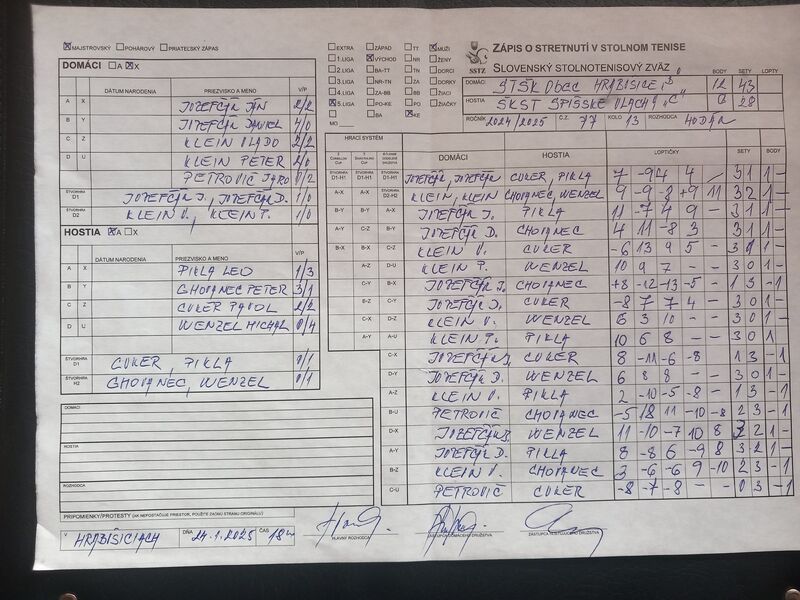 MAJSTROVSKÝ POHÁROVÝ PRIATEĽSKÝ ZÁPAS
DOMÁCI A X
DÁTUM NARODENIA PRIEZVISKO A MENO V/P
A X JOZEFČÁK JÁN 2/2
B Y JOZEFČÁK DANIEL 4/0
C Z KLEIN VLADO 2/2
D U KLEIN PETER 2/0
PETROVIČ JARO 0/2
ŠTVORHRA D1 JOZEFČÁK J., JOZEFČÁK D. 1/0
ŠTVORHRA D2 KLEIN V., KLEIN P. 1/0
HOSTIA A X
DÁTUM NARODENIA PRIEZVISKO A MENO V/P
A X PIKLA LEO 1/3
B Y CHOVANEC PETER 3/1
C Z CUKER PAVOL 2/2
D U WENZEL MICHAL 0/4
ŠTVORHRA D1 CUKER, PIKLA 0/1
ŠTVORHRA H2 CHOVANEC, WENZEL 0/1
DOMÁCI
HOSTIA
ROZHODCA
PRIPOMIENKY/PROTESTY (AK NEPOSTAČUJE PRIESTOR, POUŽITE ZADNÚ STRANU ORIGINÁLU)
V HRABIŠICIACH DŇA 24.1.2025 ČAS 18
HLAVNÝ ROZHODCA
EXTRA ZÁPAD TT MUŽI
1.LIGA VÝCHOD NR ŽENY
2.LIGA BA-TT TN DORCI
3.LIGA NR-TN ZA DORKY
4.LIGA ZA-BB BB ŽIACI
5.LIGA PO-KE PO ŽIAČKY
BA KE
MO
ZÁPIS O STRETNUTÍ V STOLNOM TENISE
SSTZ SLOVENSKÝ STOLNOTENISOVÝ ZVÄZ
BODY SETY LOPTY
DOMÁCI STŠK OBEC HRABIŠICE "B" 12 43
HOSTIA ŠKST SPIŠSKÉ VLACHY "C" 28
ROČNÍK 2024/2025 Č.Z. 77 KOLO 13 ROZHODCA
HRACÍ SYSTÉM
DOMÁCI HOSTIA LOPTIČKY SETY BODY
D1-H1 D1-H1 D1-H1 JOZEFČÁK, JOZEFČÁK CUKER, PIKLA 7 -9 4 4 / 3 1 1 -
A-X A-X D2-H2 KLEIN, KLEIN CHOVANEC, WENZEL 9 -9 -8 +9 11 3 2 1 -
B-Y B-Y A-X JOZEFČÁK J. PIKLA 11 -7 4 9 - 3 1 1 -
A-Y C-Z B-Y JOZEFČÁK D. CHOVANEC 4 11 -8 3 3 1 1
B-X B-X C-Z KLEIN V. CUKER -6 13 9 5 - 3 1 1 -
A-Z D-U KLEIN P. WENZEL 10 9 7 - - 3 0 1 -
C-Y B-X JOZEFČÁK J. CHOVANEC +8 -12 -13 -5 - 1 3 - 1
B-Z C-Y JOZEFČÁK D. CUKER -8 7 7 4 - 3 0 1 -
C-X D-Z KLEIN V. WENZEL 6 3 10 - - 3 0 1 -
A-Y A-U KLEIN P. PIKLA 10 6 8 - - 3 0 1
C-X JOZEFČÁK J. CUKER 8 -11 -6 -8 1 3 - 1
D-Y JOZEFČÁK D. WENZEL 6 8 8 - - 3 0 1 -
A-Z KLEIN V. PIKLA 2 -10 -5 -8 - 1 3 - 1
B-U PETROVIČ CHOVANEC -5 18 11 -10 -8 2 3 - 1
D-X JOZEFČÁK J. WENZEL 11 -10 -7 10 8 3 2 1 -
A-Y JOZEFČÁK D. PIKLA 8 -8 6 -9 8 3 2 1 -
B-Z KLEIN V. CHOVANEC 3 -6 -6 9 -10 2 3 - 1
C-U PETROVIČ CUKER -8 -7 -8 - - 0 3 - 1